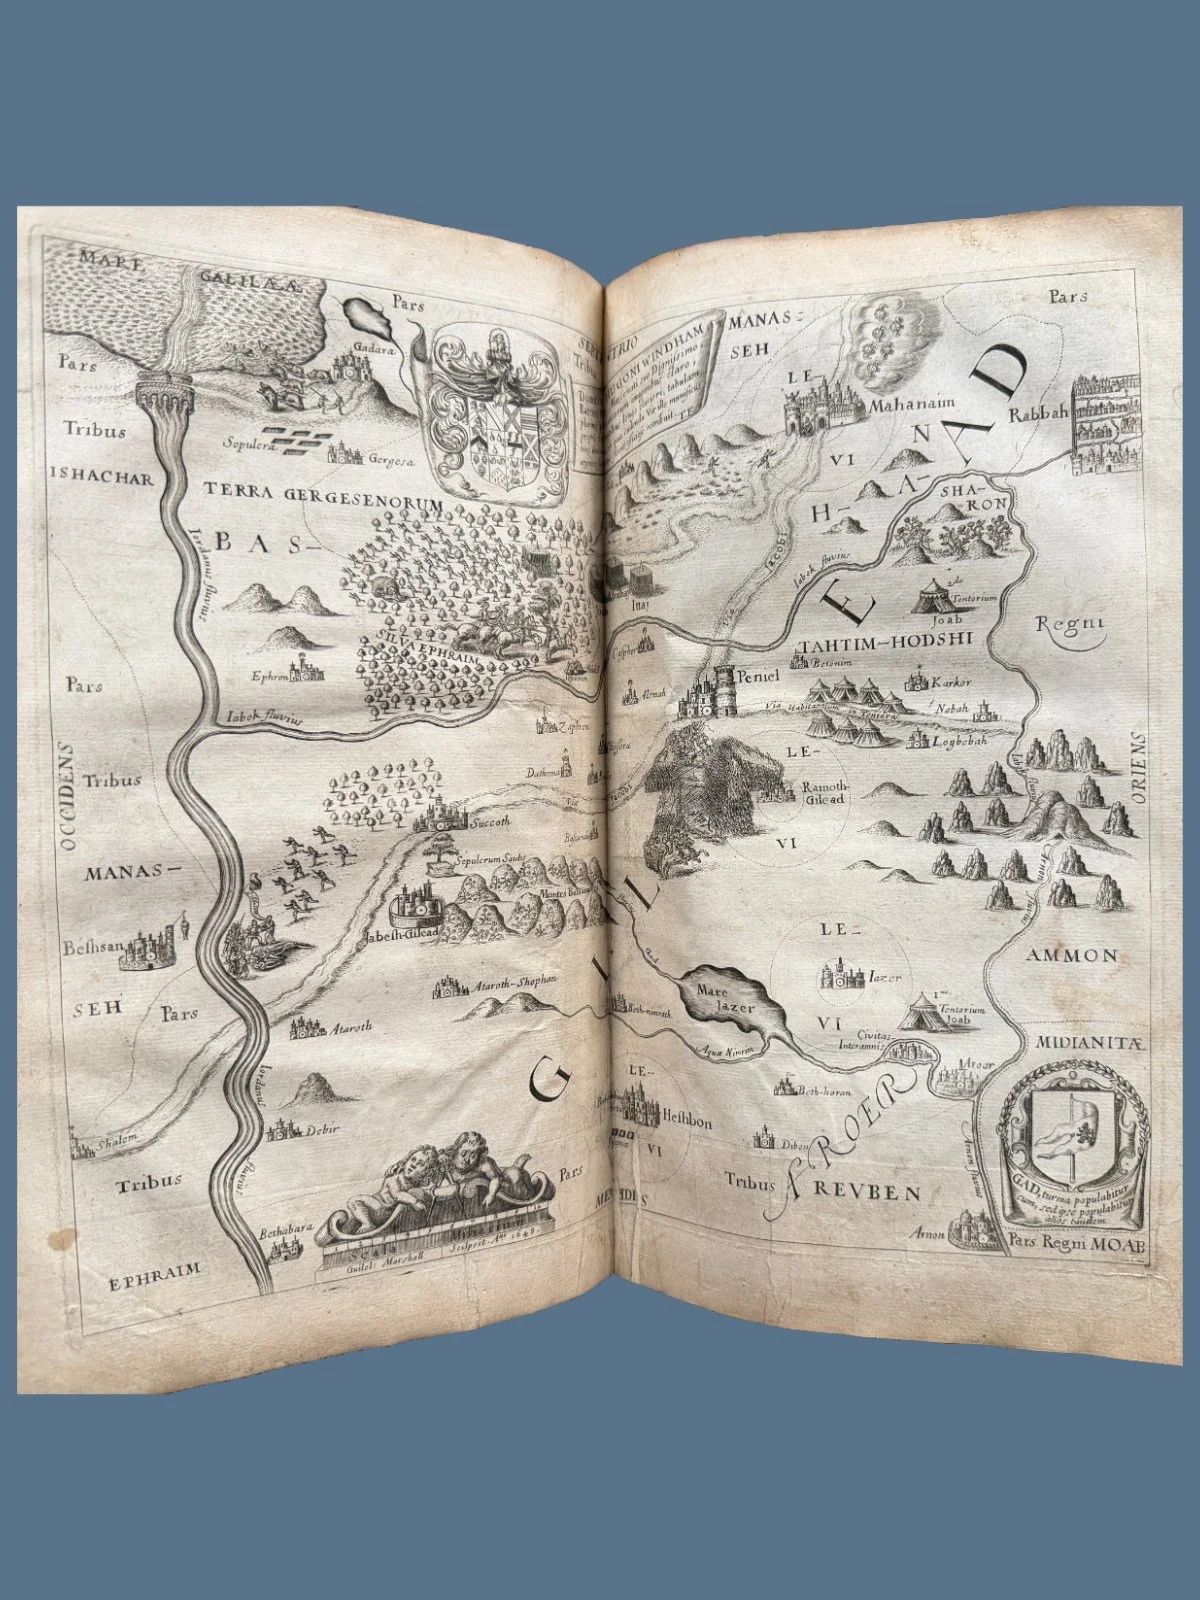 MARE
GALILÆÆ
Pars
Pars
Gadara
Tribus
ISHACHAR
Sepulcra
Gergesa
TERRA GERGESENORUM
BAS-
Iordanus fluvius
SILVA EPHRAIM
Ephron
Pars
Iabok fluvius
OCCIDENS
Tribus
Zaphon
Dathema
Via
Succoth
Sepulcrum Saulis
MANAS-
Bethsan
Jabesh-Gilead
SEH
Pars
Ataroth-Shophan
Ataroth
Iordanus
fluvius
Debir
Shalem
Tribus
Bethabara
EPHRAIM
Scala
Guilel: Marshall
Sculpsit. Ano 1648.
Pars
SEPTENTRIO
WINDHAM
MANAS-
SEH
Pars
LE-
VI
Mahanaim
Rabbah
N
H-
A-
SHA-
RON
Jacobi
Iabok fluvius
2do
Tentorium
Joab
Regni
TAHTIM-HODSHI
Betonim
Casphor
Almah
Peniel
Karkor
Via Habitantium in Tentoriis
Nabah
Iogbebah
LE-
VI
Ramoth-
Gilead
ORIENS
Arnon fluvius
GILEAD
LE-
VI
Iazer
AMMON
Mare
Jazer
Beth-nimrah
Aquæ Nimrim
1mum
Tentorium
Joab
Civitas
Interamnis
Aroer
MIDIANITÆ
LE-
VI
Heshbon
Beth-haran
Dibon
AROER
Arnon fluvius
Tribus
REVBEN
MERIDIES
Arnon
GAD, turma populabitur
eum, sed ipse populabitur
alios tandem
Pars Regni MOAB